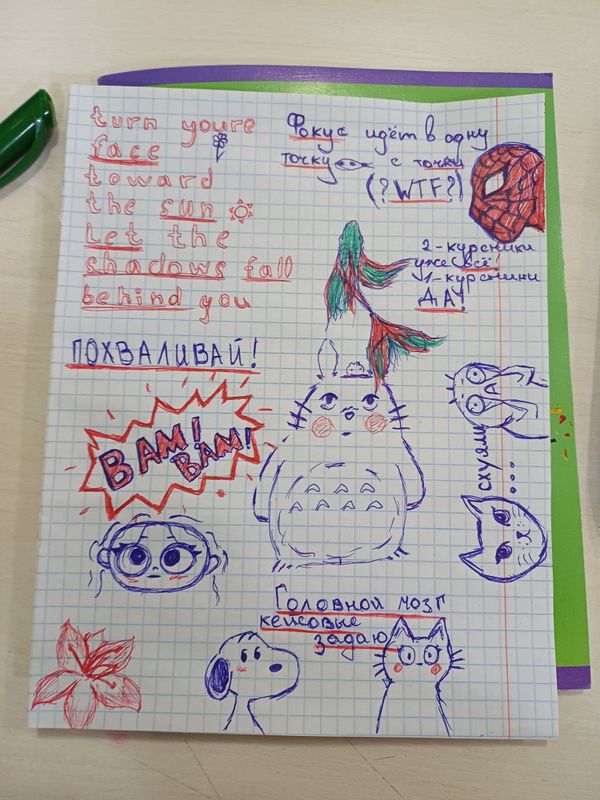 turn youre
face
toward
the sun
Let the
shadows fall
behind you
Фокус идёт в одну
точку с точки
(?WTF?)
2-курсники
уже всё!
1-курсники
ДА!
ПОХВАЛИВАЙ!
ВАМ!
ВАМ!
схуяли
...
Головной мозг
кейсовые
задаю